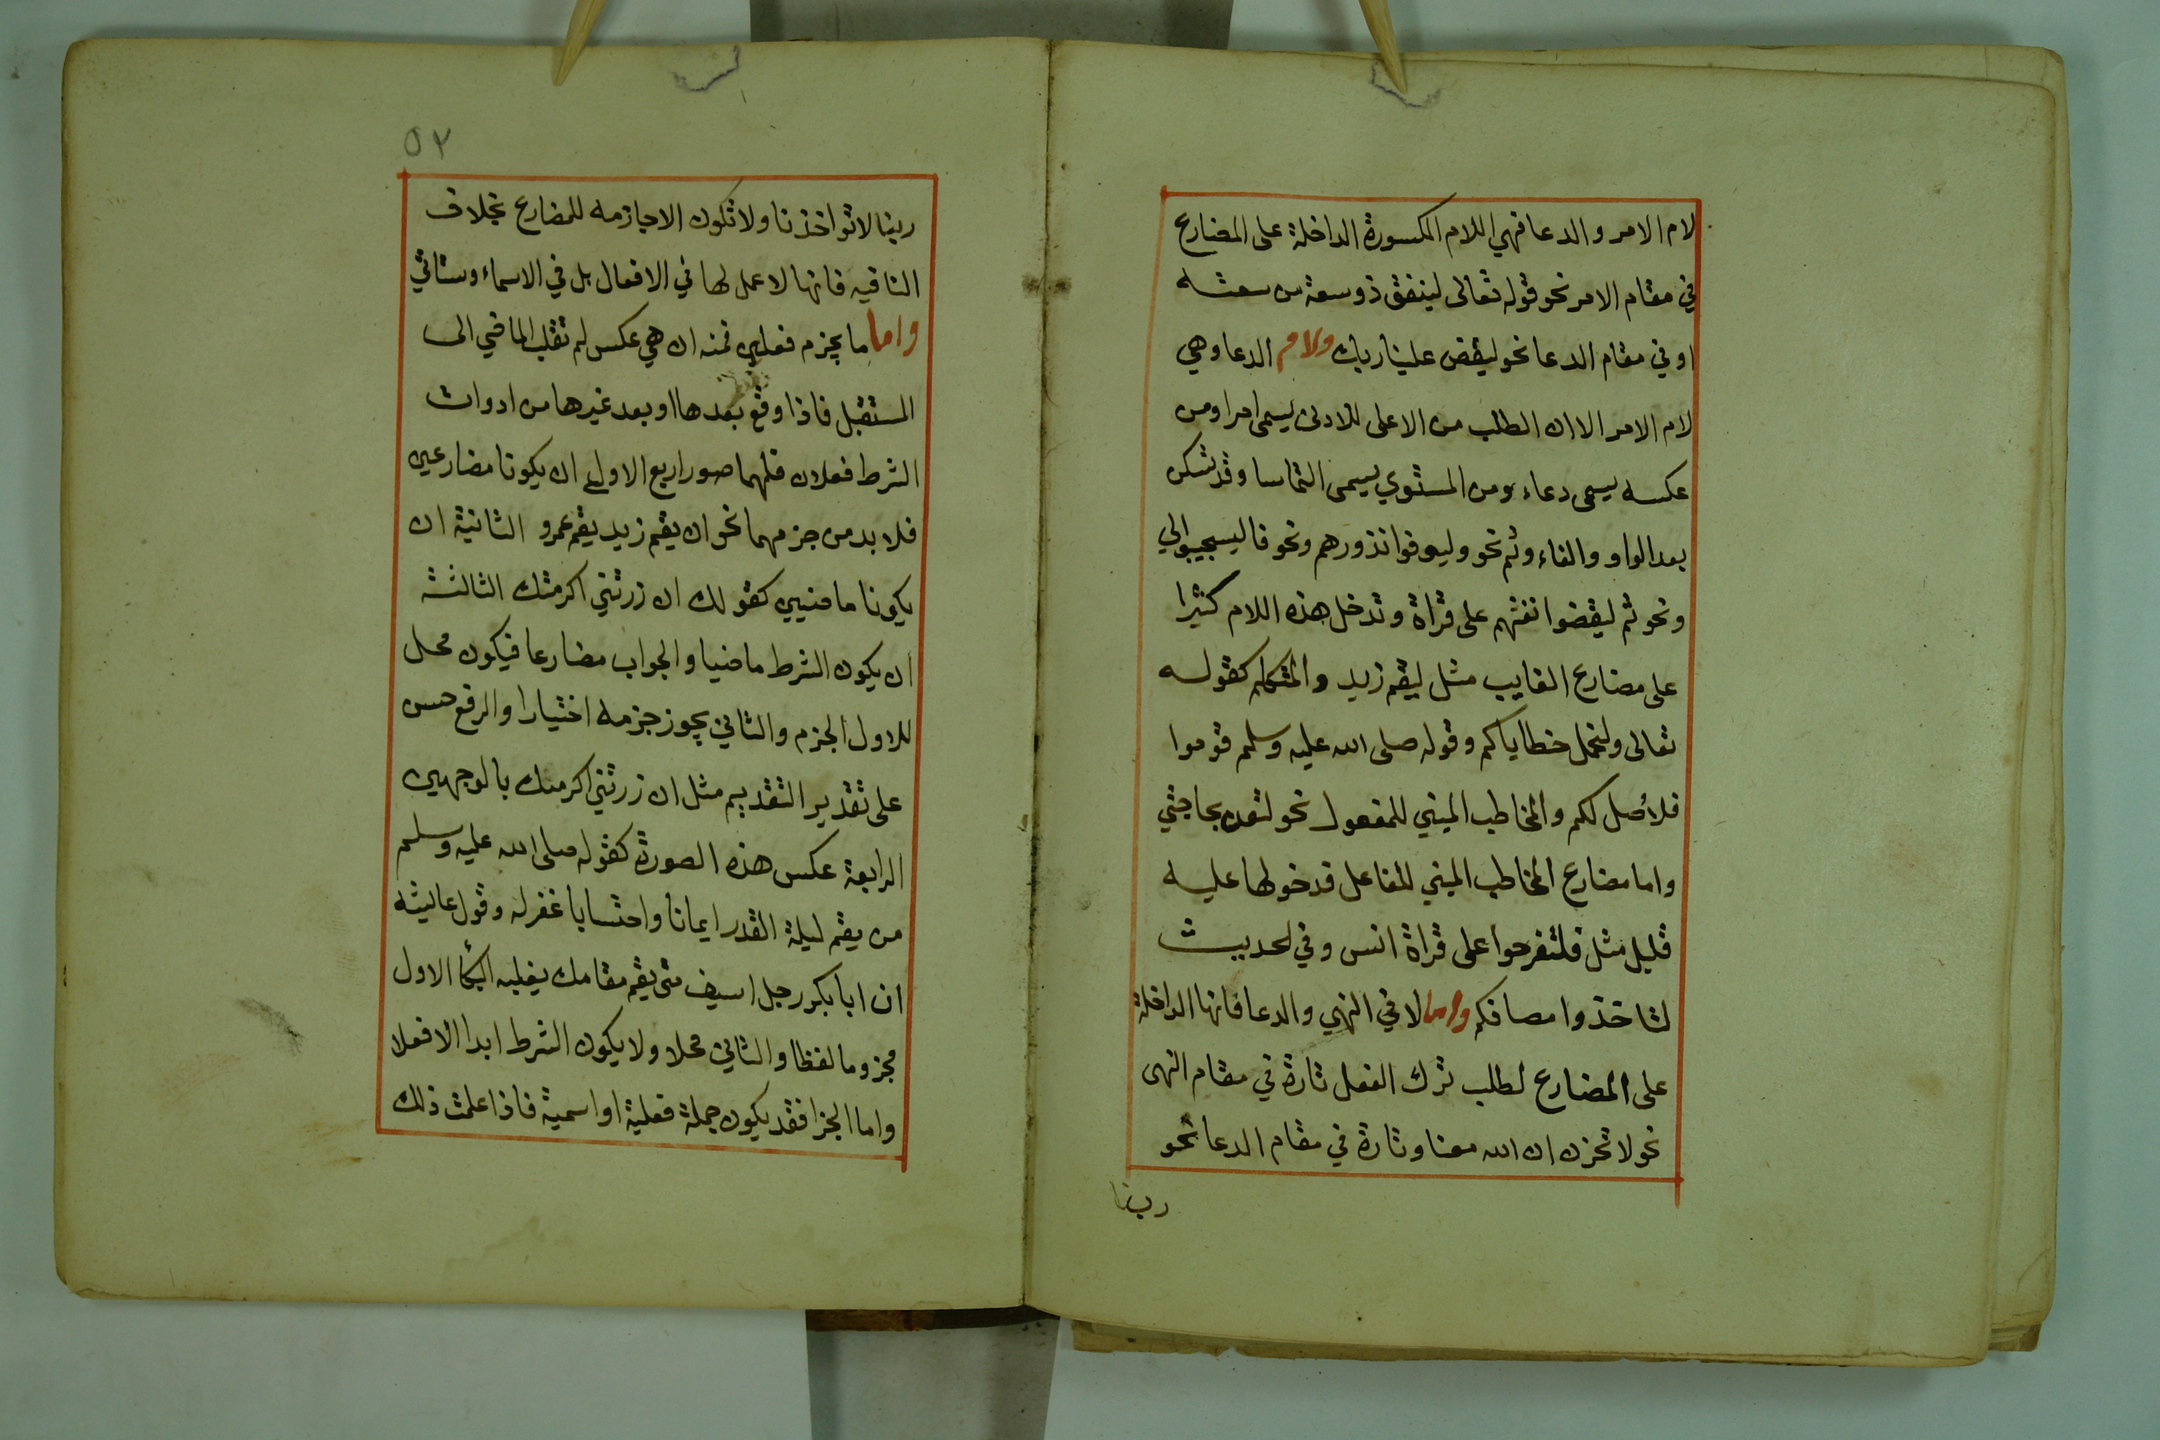 لام الامر والدعا فهي اللام المكسورة الداخلة على المضارع
في مقام الامر نحو قوله تعالى لينفق ذو سعة من سعته
او في مقام الدعا نحو ليقض علينا ربك ولام الدعا وهي
لام الامر الا ان الطلب من الاعلى للادنى يسمى امرا ومن
عكسه يسمى دعاء ومن المستوي يسمى التماسا وقد تسكن
بعد الواو والفاء وثم نحو وليوفوا نذورهم ونحو فاليستجيبوا لي
ونحو ثم ليقضوا تفثهم على قراة وتدخل هذه اللام كثيرا
على مضارع الغايب مثل ليقم زيد والمتكلم كقوله
تعالى ولنحمل خطاياكم وقوله صلى الله عليه وسلم قوموا
فلأصل لكم والمخاطب المبني للمفعول نحو لتعن بحاجتي
واما مضارع المخاطب المبني للفاعل فدخولها عليه
قليل مثل فلتفرحوا على قراة انس وفي لحديث
لتاخذوا مصافكم واما لا في النهي والدعا فانها الداخلة
على المضارع لطلب ترك الفعل تارة في مقام النهى
نحو لا تحزن ان الله معنا وتارة في مقام الدعا نحو
ربنا
٥٢
ربنا لا تواخذنا ولا تكون الا جازمه للمضارع بخلاف
النافيه فانها لا عمل لها في الافعال بل في الاسماء وستاتي
واما ما يجزم فعلين فمنه ان هي عكس لم تقلب الماضي الى
المستقبل فاذا وقع بعدها او بعد غيرها من ادوات
الشرط فعلان فلهما صور اربع الاولى ان يكونا مضارعين
فلا بد من جزمهما نحو ان يقم زيد يقم عمرو الثانية ان
يكونا ماضيين كقولك ان زرتني اكرمتك الثالثة
ان يكون الشرط ماضيا والجواب مضارعا فيكون محل
للاول الجزم والثاني يجوز جزمه اختيارا والرفع حسن
على تقدير التقديم مثل ان زرتني اكرمك بالوجهين
الرابعة عكس هذه الصورة كقوله صلى الله عليه وسلم
من يقم ليلة القدر ايمانا واحتسابا غفر له وقول عاليشه
ان ابا بكر رجل اسيف متى يقم مقامك يغلبه البكأ الاول
مجزوما لفظا والثاني محلا ولا يكون الشرط ابدا الا فعلا
واما الجزا فقد يكون جملة فعلية او اسمية فاذا علمت ذلك